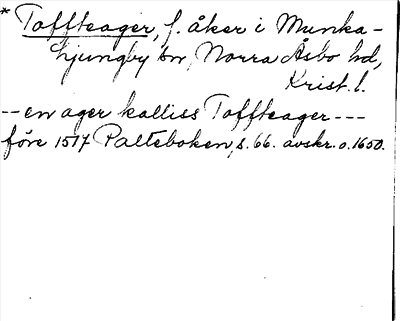 * Toffteager, f. åker i Munka-
Ljungby sn, Norra Åsbo hd,
Krist. l.
-- en ager kalliss Toffteager ---
före 1517 Palteboken, s. 66. avskr. o. 1650.